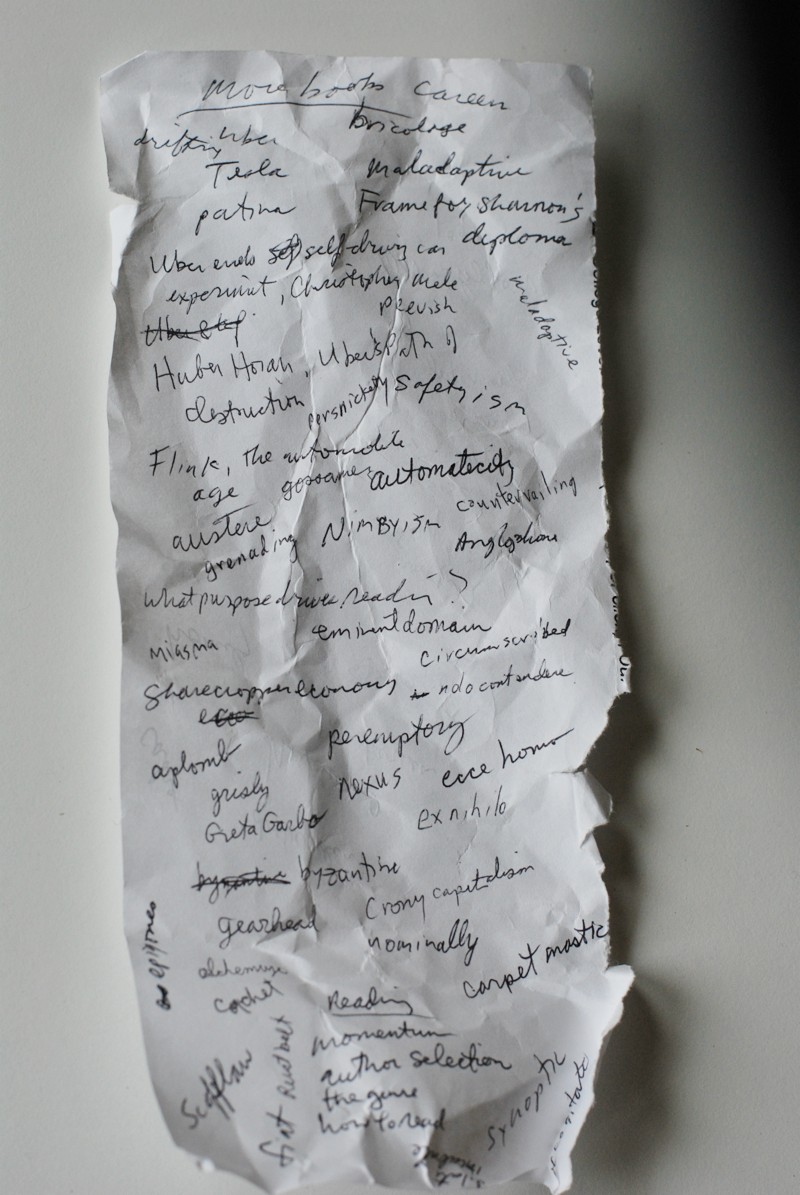 More books career
drifting Uber bricolage
Tesla maladaptive
patina Frame for Shannon's
diploma
Uber ends self self-driving car
experiment, Christopher Mele
maladaptive
peevish
Huber Horan, Uber's Path of
destruction persnickety Safetyism
Flink, The automobile
age gossamer automaticity
austere countervailing
grenading NimBYism Anglophone
what purpose drives readin ?
miasma eminent domain
circumscribed
Sharecropper economy nolo contendere
aplomb peremptory
grisly nexus ecce homo
Greta Garbo ex nihilo
byzantine byzantine
gearhead Crony capitalism
nominally
epigones
carpet mastic
cachet Reading
momentum
Scofflaw
fiat Rust belt
author selection
the genre
how to read
synoptic